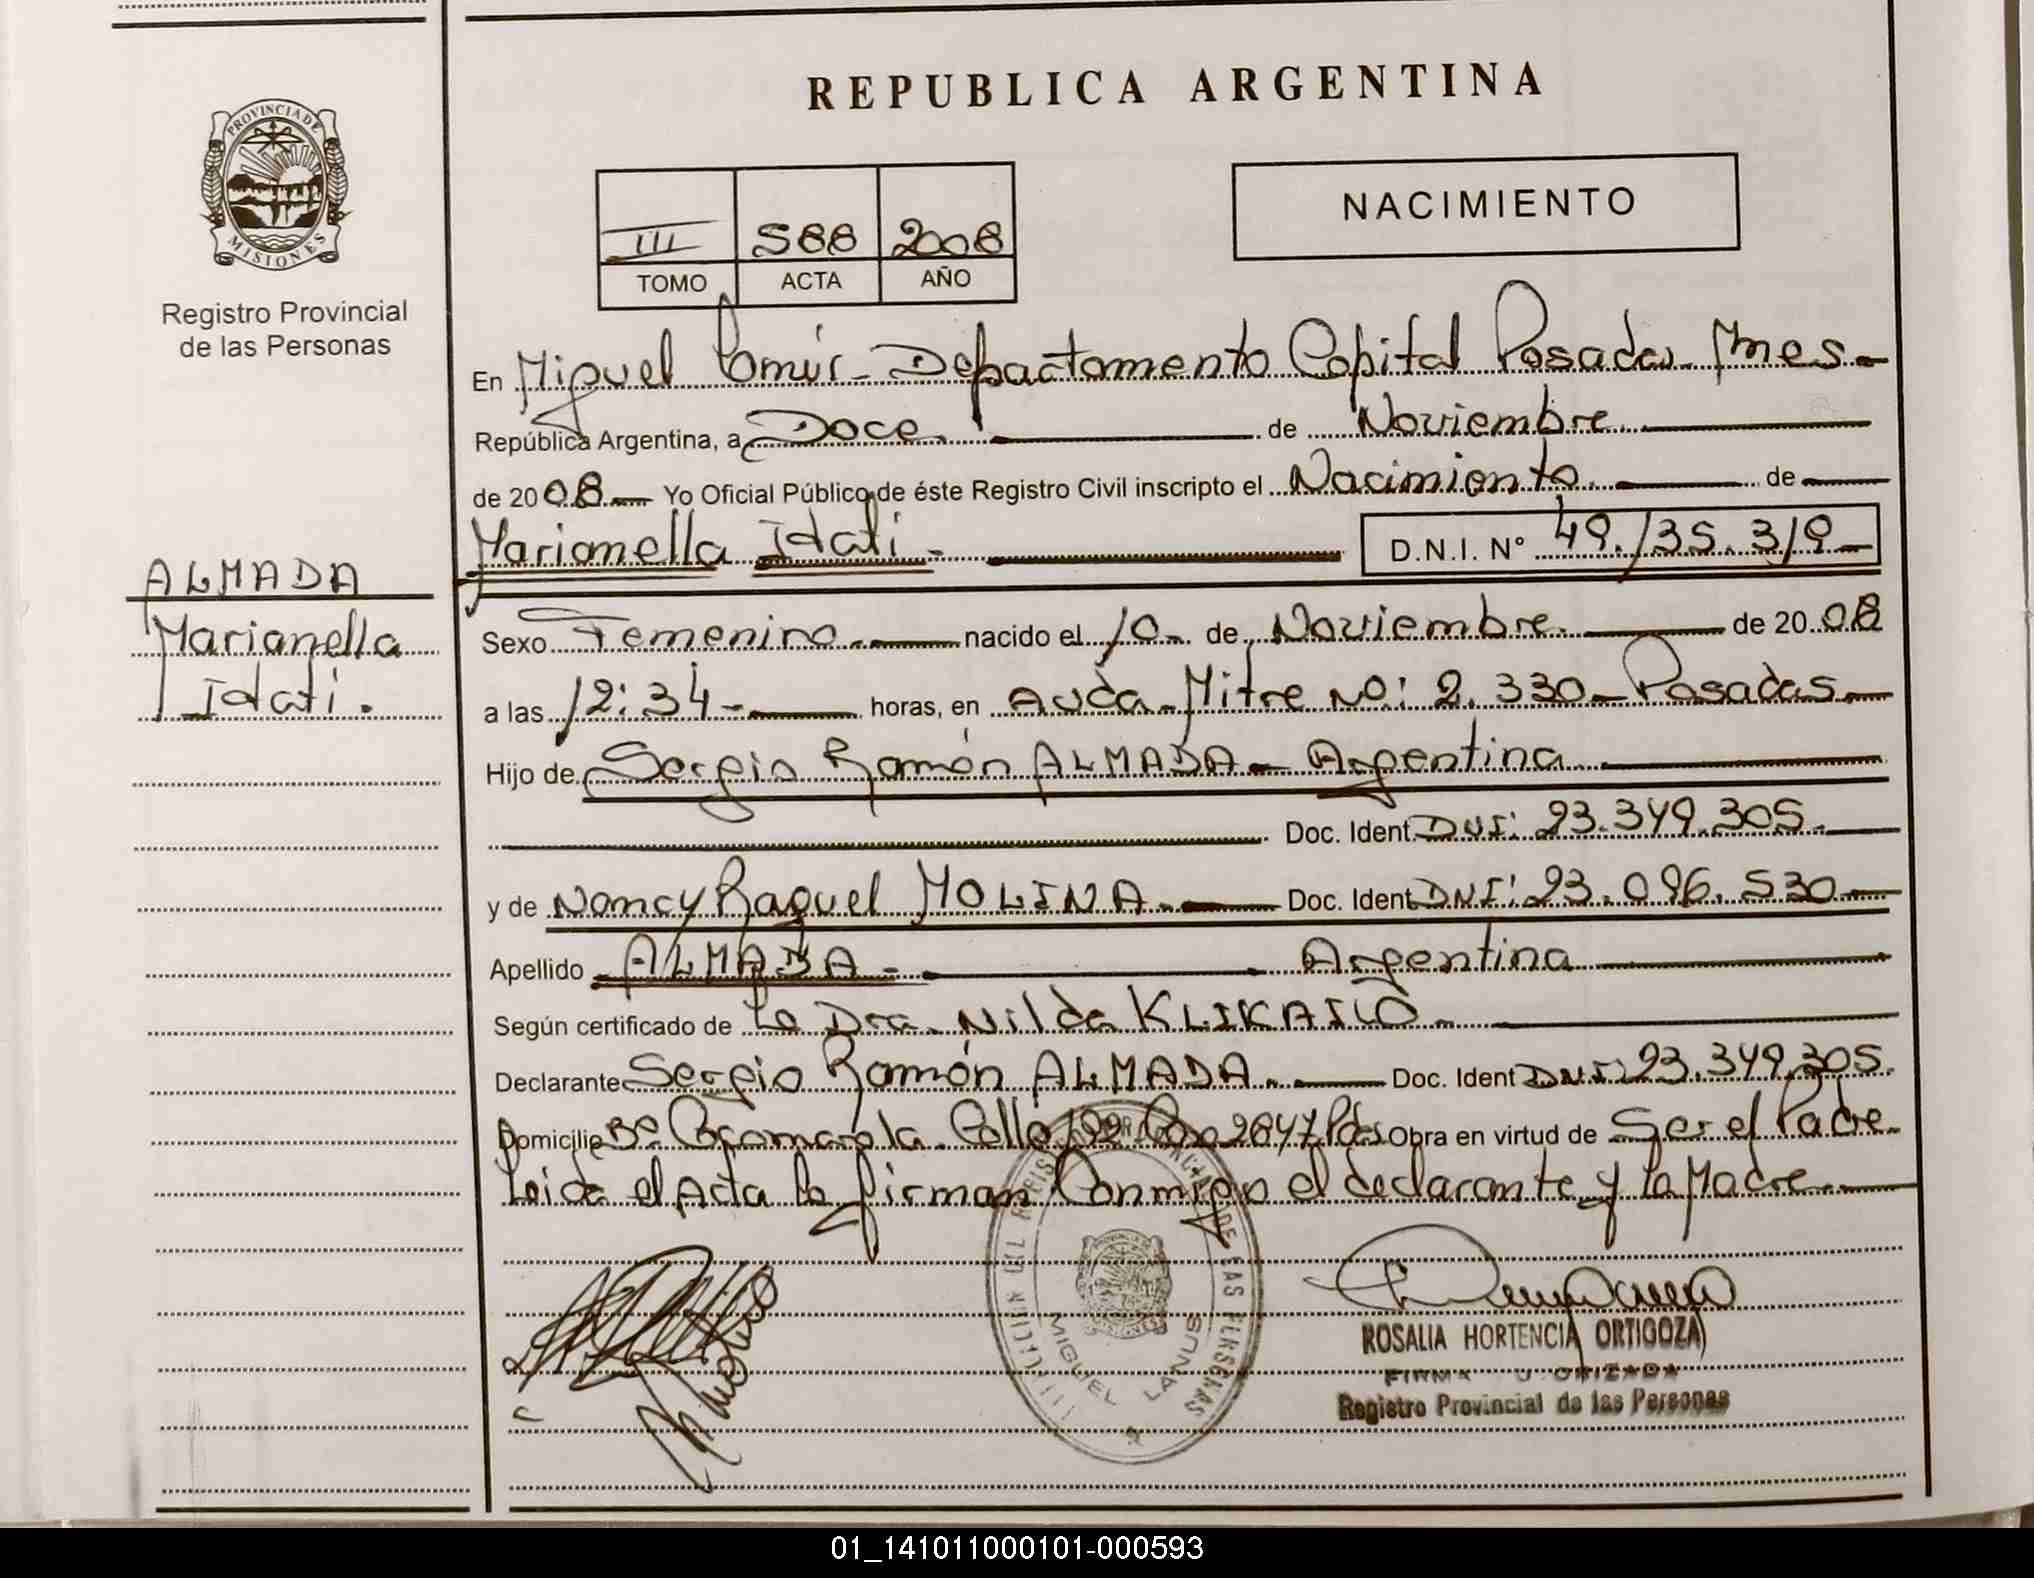 REPUBLICA ARGENTINA
PROVINCIA DE MISIONES
Registro Provincial
de las Personas
III 588 2008
TOMO ACTA AÑO
NACIMIENTO
En Miguel Lanús - Departamento Capital Posadas Mnes -
República Argentina, a Doce. de Noviembre
de 2008 Yo Oficial Público de éste Registro Civil inscripto el Nacimiento de
Marianella Itatí - D.N.I. Nº 49.135.319
ALMADA
Marianella
Itatí.
Sexo Femenino. nacido el 10 de Noviembre de 2008
a las 12:34 - horas, en Avda. Mitre Nº: 2.330 - Posadas
Hijo de Sergio Ramón ALMADA - Argentina
Doc. Ident. DNI: 23.349.305.
y de Nancy Raquel MOLINA. Doc. Ident DNI: 23.096.530
Apellido ALMADA - Argentina
Según certificado de La Dra. Nilda
Declarante Sergio Ramón ALMADA. Doc. Ident DNI: 23.349.305.
Domicilio Bº Calle 192 2847 Pdas Obra en virtud de Ser el Padre
Leída el Acta la firman Conmigo el declarante y la Madre.
MIGUEL LANUS
ROSALIA HORTENCIA ORTIGOZA
FIRMA AUTORIZADA
Registro Provincial de las Personas
01_141011000101-000593